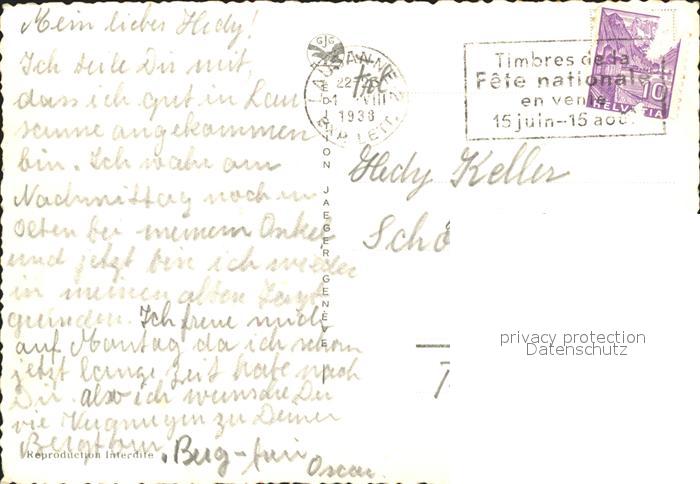 Mein liebes Hedy!
Ich teile Dir mit,
dass ich gut in Lau
sanne angekommen
bin. Ich wahr am
Nachmittag noch in
Olten bei meinem Onkel
und jetzt bin ich wieder
in meinen alten
gründen. Ich freue mich
auf Montag da ich schon
jetzt lange Zeit habe nach
Dir also ich wünsche Dir
vie Vergnügen zu Deiner
Bergtour. Berg-frei
Oscar
Reproduction Interdite
EDITION JAEGER GENÈVE
GJG
LAUSANNE
22
VIII
1938
LETT. 2
Timbres de la
Fête nationale
en vente
15 juin-15 août
10
HELVETIA
Frl
Hedy Keller
Schö
privacy protection
Datenschutz